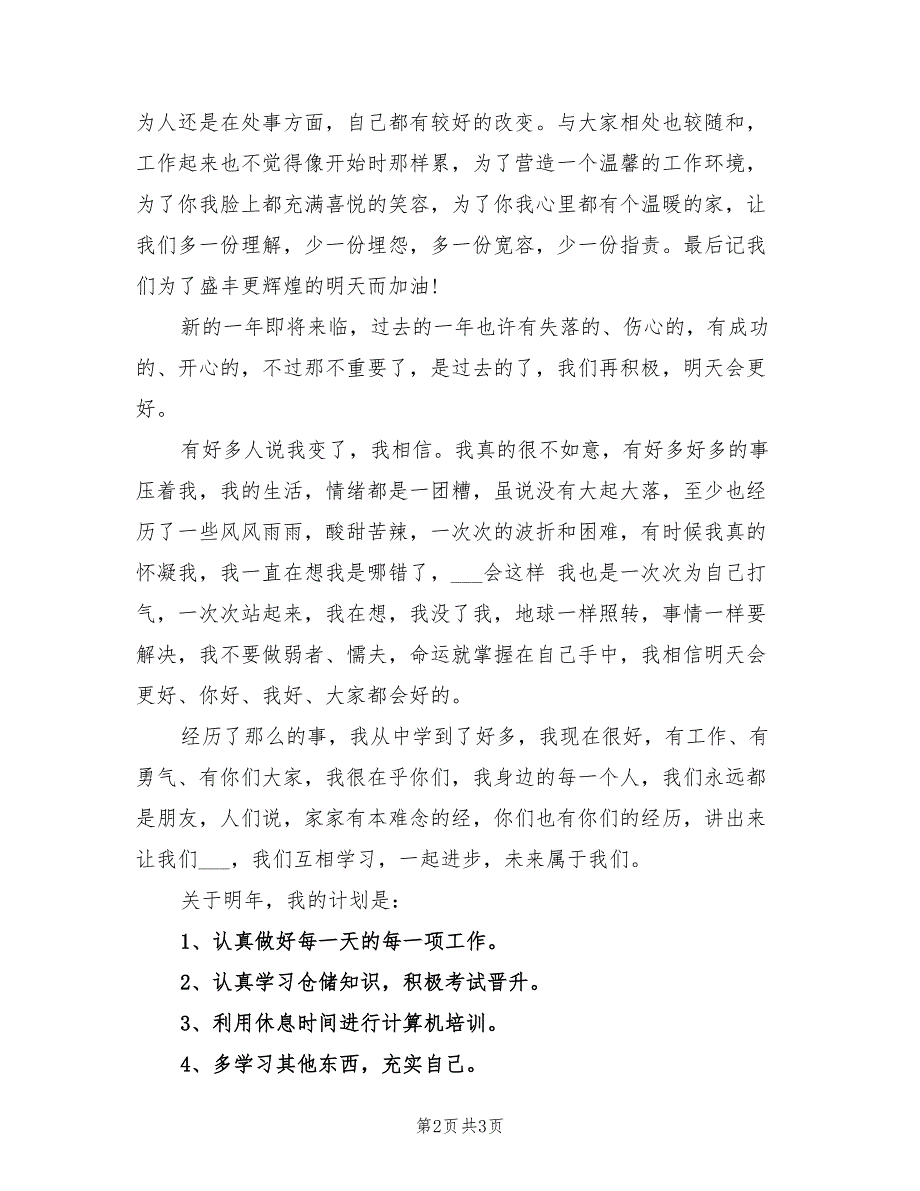 为人还是在处事方面，自己都有较好的改变。与大家相处也较随和，
工作起来也不觉得像开始时那样累，为了营造一个温馨的工作环境，
为了你我脸上都充满喜悦的笑容，为了你我心里都有个温暖的家，让
我们多一份理解，少一份埋怨，多一份宽容，少一份指责。最后记我
们为了盛丰更辉煌的明天而加油！
新的一年即将来临，过去的一年也许有失落的、伤心的，有成功
的、开心的，不过那不重要了，是过去的了，我们再积极，明天会更
好。
有好多人说我变了，我相信。我真的很不如意，有好多好多的事
压着我，我的生活，情绪都是一团糟，虽说没有大起大落，至少也经
历了一些风风雨雨，酸甜苦辣，一次次的波折和困难，有时候我真的
怀凝我，我一直在想我是哪错了，___会这样 我也是一次次为自己打
气，一次次站起来，我在想，我没了我，地球一样照转，事情一样要
解决，我不要做弱者、懦夫，命运就掌握在自己手中，我相信明天会
更好、你好、我好、大家都会好的。
经历了那么的事，我从中学到了好多，我现在很好，有工作、有
勇气、有你们大家，我很在乎你们，我身边的每一个人，我们永远都
是朋友，人们说，家家有本难念的经，你们也有你们的经历，讲出来
让我们___，我们互相学习，一起进步，未来属于我们。
关于明年，我的计划是：
1、认真做好每一天的每一项工作。
2、认真学习仓储知识，积极考试晋升。
3、利用休息时间进行计算机培训。
4、多学习其他东西，充实自己。
第2页 共3页